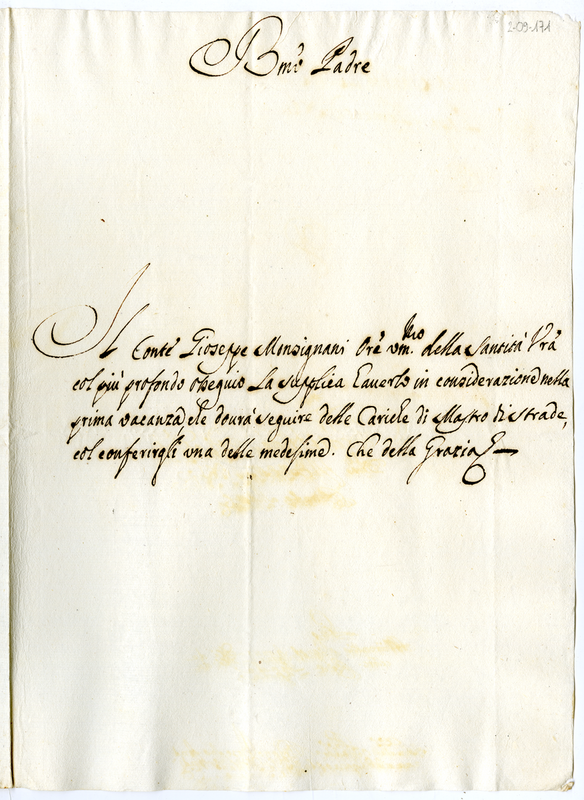 2-09-171
Bmo Padre
Il Conte Gioseppe Monsignani Ore vmo. della Santità Vrã
col più profondo osequio La supplica hauerlo in considerazione nella
prima vacanza, che dourà seguire delle Cariche di Mastro di strade,
col conferirgli vna delle medesime. Che della Grazia